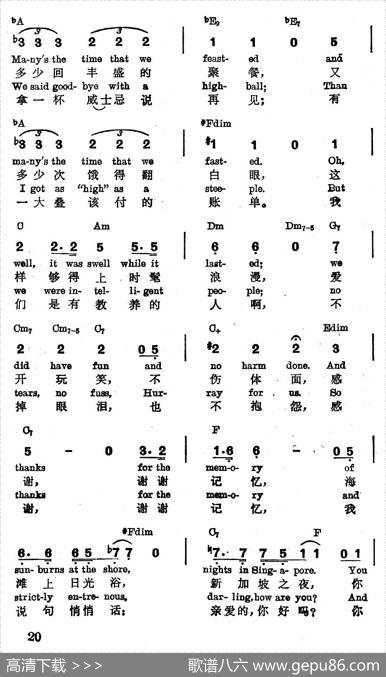 ♭A ♭E₉ ♭E₇
♭3 3 3 2 2 2 1 1 0 5
Ma-ny's the time that we feast- ed and
多少回 丰盛的 聚餐，又
We said good- bye with a high- ball; Than
拿一杯 威士忌 说 再见；有
♭A #Fdim
♭3 3 3 2 2 2 #1 1 0 1
ma-ny's the time that we fast- ed. Oh,
多少次 饿得翻 白眼，这
I got as "high" as a stee- ple. But
一大叠 该付的 账单。我
C Am Dm Dm₇₋₅ G₇
2 2·2 5 5·5 6 6 0 7
well, it was swell while it last- ed; we
样 够得上时髦 浪漫，爱
we were in- tel- li-gent peo- ple; no
们 是有教养的 人啊，不
Cm₇ Cm₇₋₅ C₇ C+ Edim
2 2 2 0 5 #2 2 2 3
did have fun and no harm done. And
开玩笑，不 伤体面，感
tears, no fuss, Hur- ray for us. So
掉眼泪，也 不抱怨，感
C₇ F
5 - 0 3·2 1·6 6 - 0 5
thanks for the mem-o- ry of
谢， 谢谢 记忆， 海
thanks for the mem-o- ry and
谢， 谢谢 记忆， 我
#Fdim C₇ F
6·6 6 5 ♭7 7 0 ♮7·7 7 5 1 1 0 1
sun-burns at the shore, nights in Sing-a-pore. You
滩上日光浴， 新加坡之夜，你
strict-ly en-tre-nous, dar-ling, how are you? And
说句悄悄话： 亲爱的，你好吗？你
20
高清下载 >>> 歌谱八六 www.gepu86.com